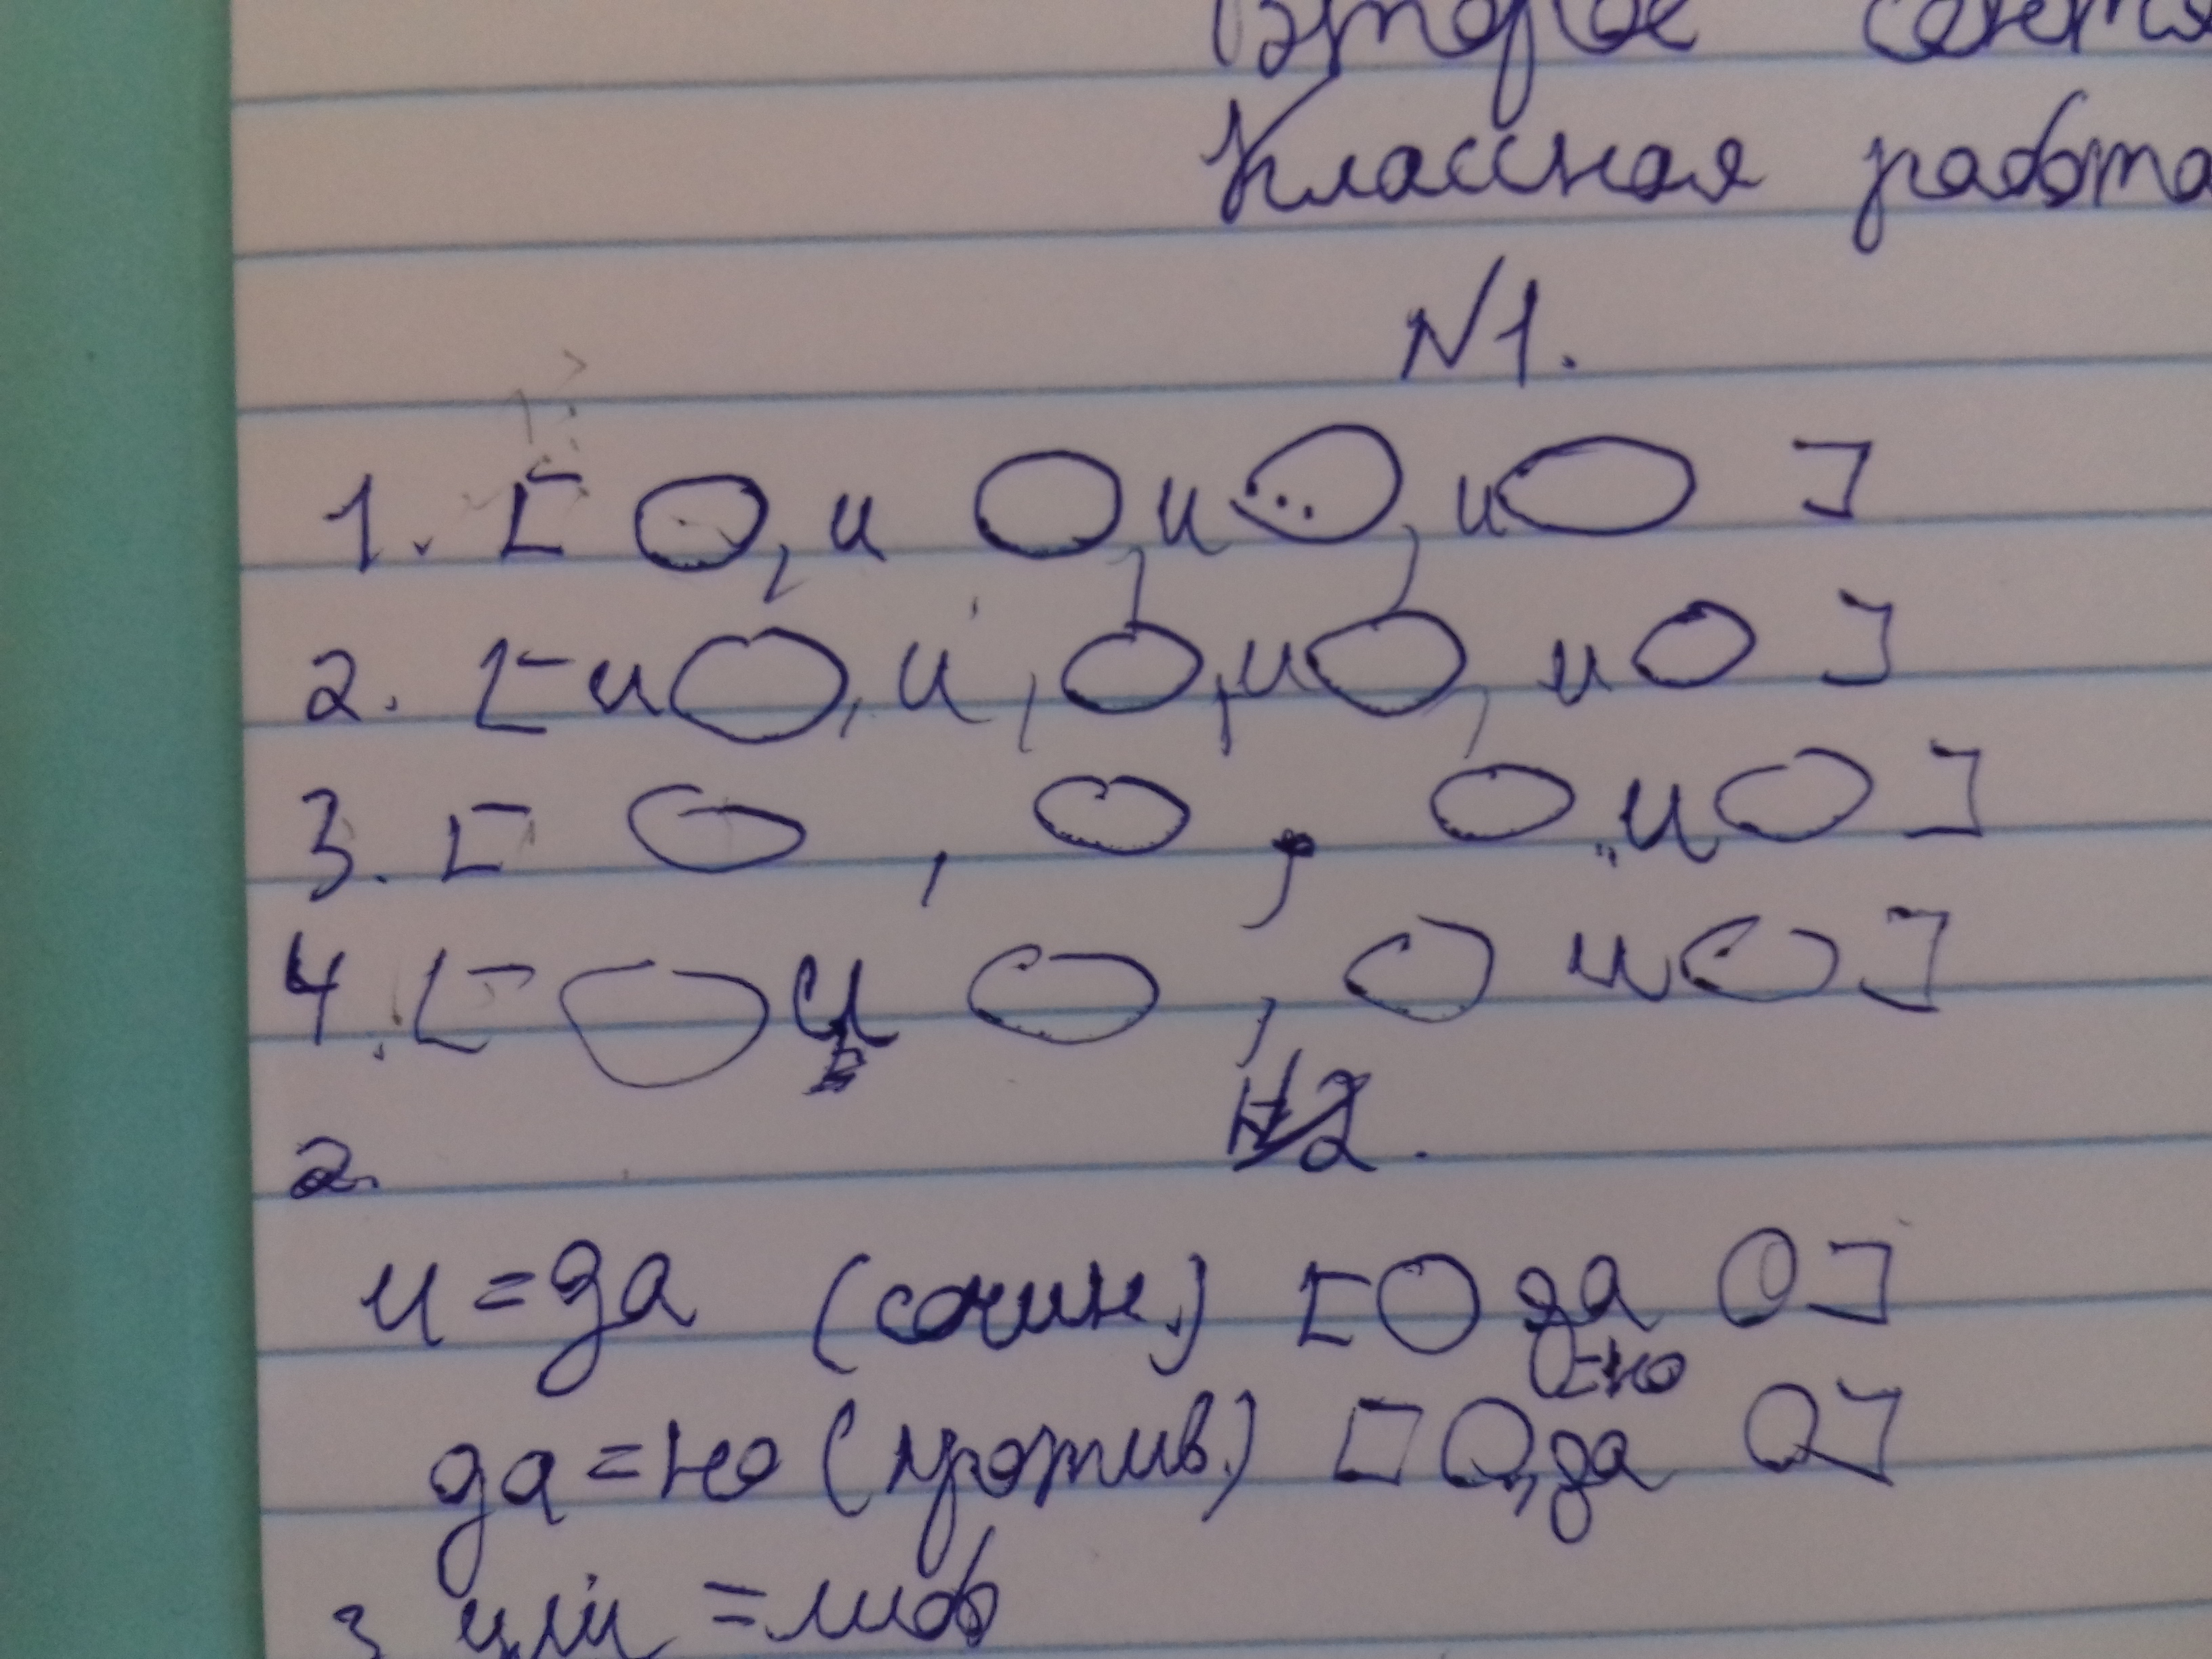 Второе
Классная работа
№1.
1. [ О, и О, и О, и О ]
2. [ и О, и, О, и О, и О ]
3. [ О , О , О и О ]
4. [ О и О , О и О ]
2. №2.
и = да (сочин.) [ О да О ]
=но
да = но (против.) [ О, да О ]
3 =либо